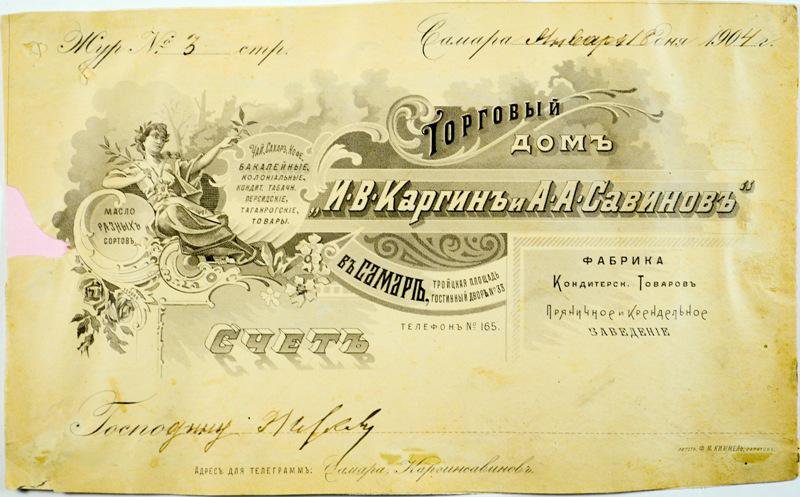 Жур № 3 стр.
Самара Января 18 дня 1904 г.
Торговый
домъ
„И·В·Каргинъ и А·А·Савиновъ"
Чай, Сахаръ, Кофе,
Бакалейные,
колоніальные,
кондит. табачн.
персидскіе,
таганрогскіе,
товары.
Масло
разныхъ
сортовъ
въ Самарѣ,
Тройцкая площадь
Гостинный дворъ № 33
Телефонъ № 165.
Фабрика
Кондитерск. Товаровъ
Пряничное и Крендельное
заведеніе
Счетъ
Господину
Адресъ для телеграммъ: Самара, Каргинсавиновъ.
Ф. М. Киммель,